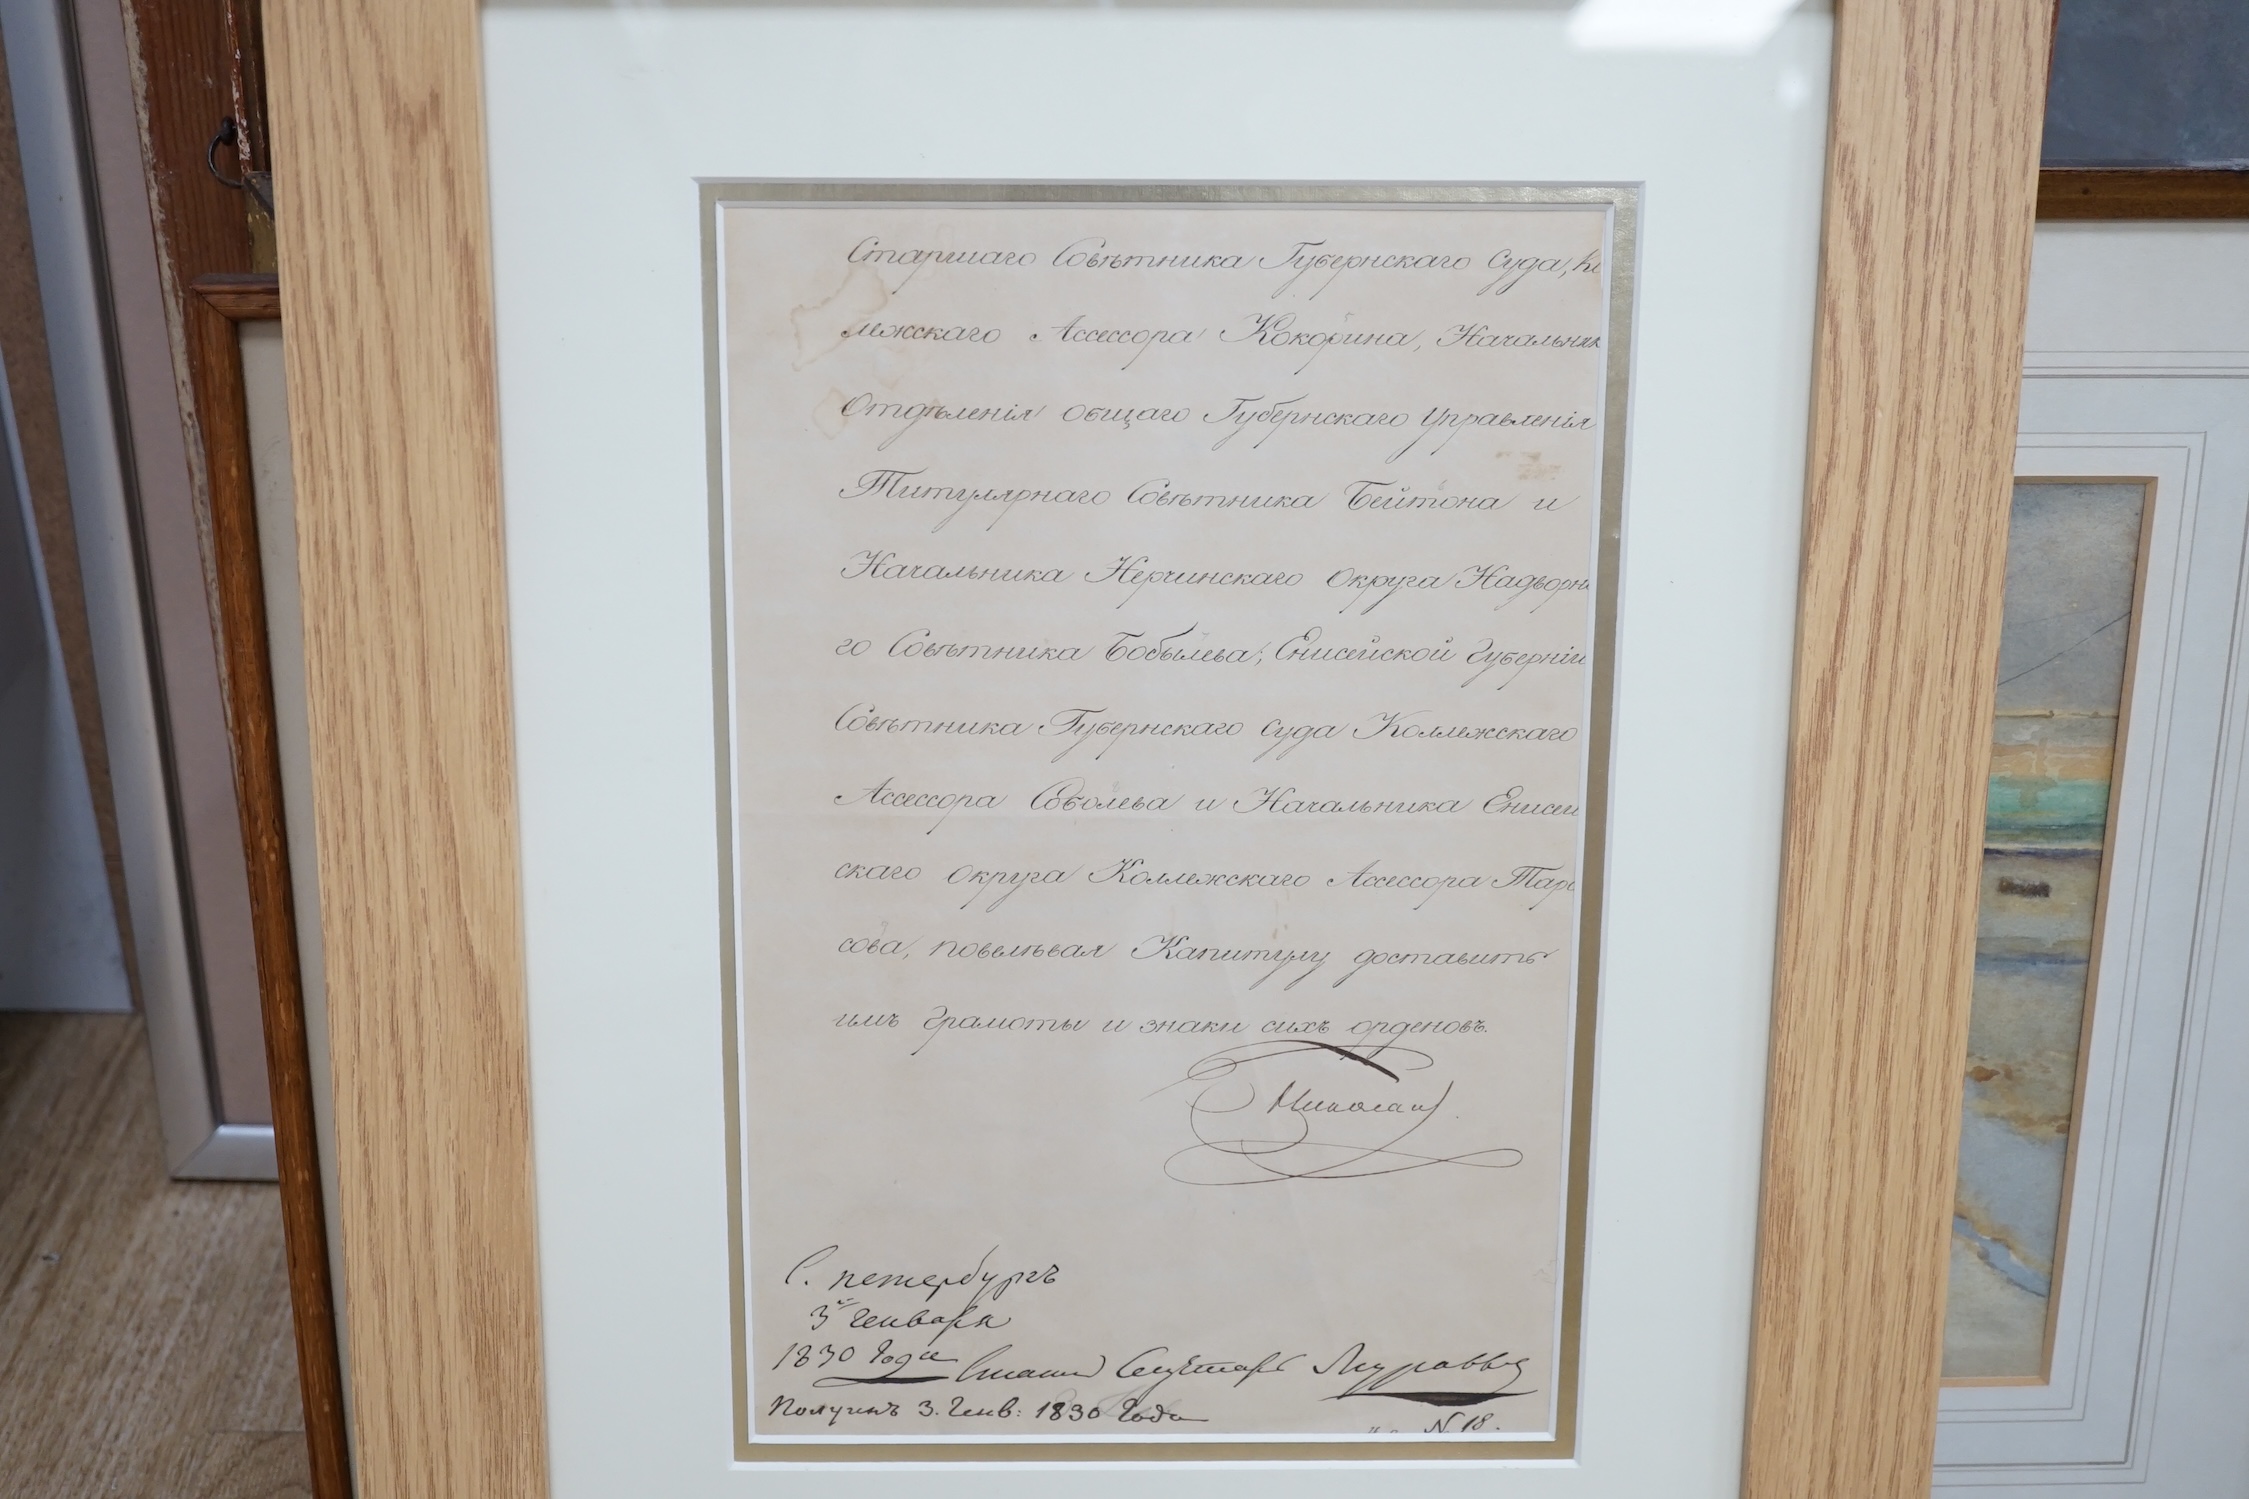 Старшаго Совѣтника Губернскаго Суда, Ко
лежскаго Ассесора Кокорина, Начальник
Отдѣленія общаго Губернскаго Управленія
Титулярнаго Совѣтника Бейтона и
Начальника Нерчинскаго Округа Надворна
го Совѣтника Бобылева; Енисейской Губерніи
Совѣтника Губернскаго Суда Коллежскаго
Ассесора Соболева и Начальника Енисей
скаго Округа Коллежскаго Ассесора Тара
сова, повелѣвая Капитулу доставить
имъ грамоты и знаки сихъ орденовъ.
Николай
С. петербургъ
3го Генваря
1830 Года
Статсъ Секретарь Муравьевъ
Получилъ 3. Генв: 1830 Года
N. 18.